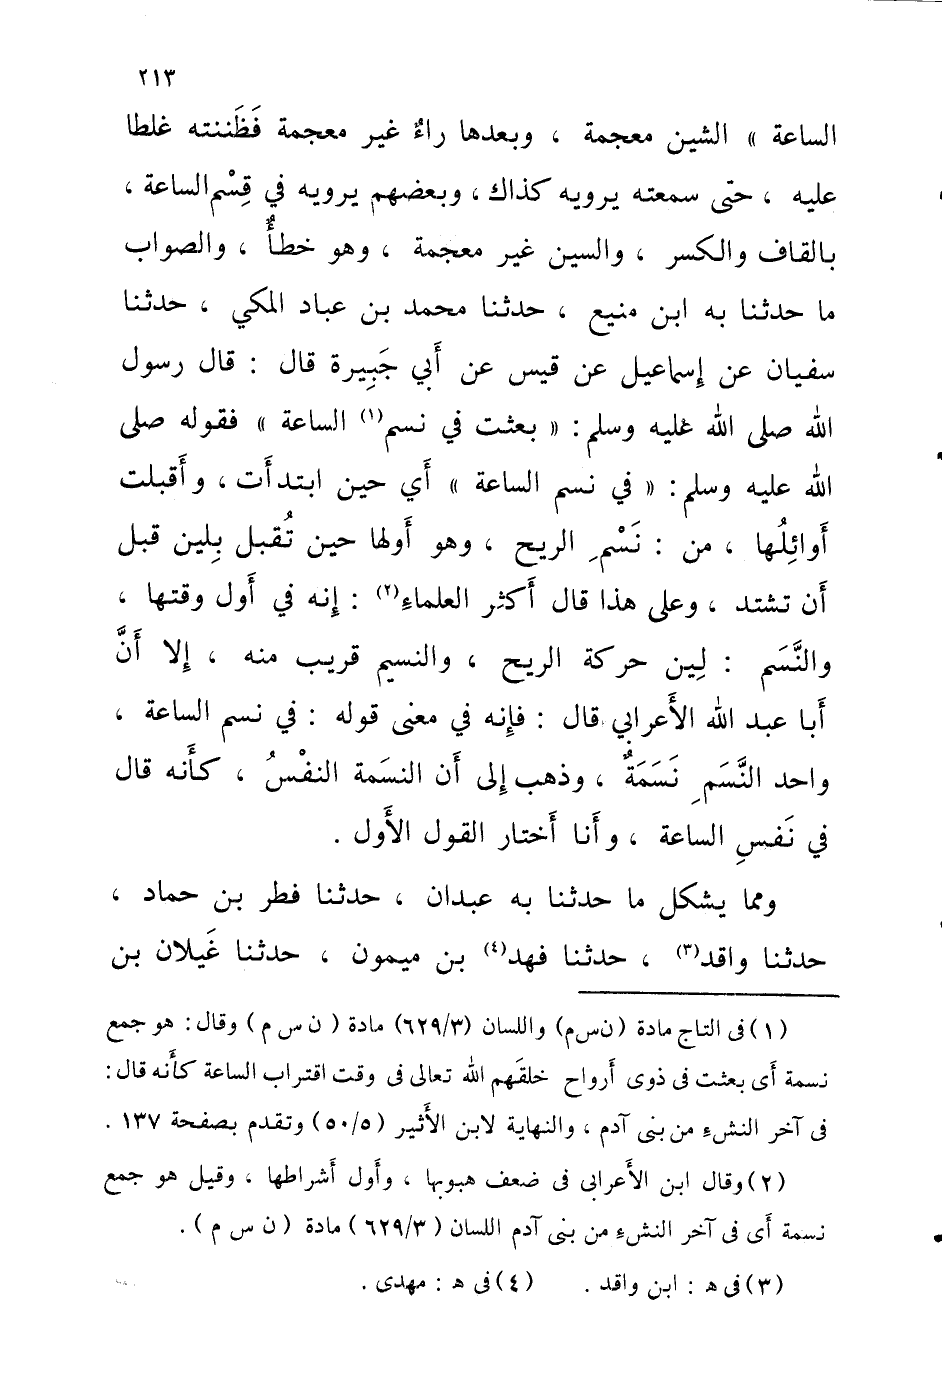 ٢١٣
الساعة » الشين معجمة ، وبعدها راءٌ غير معجمة فَظَننته غلطا
عليه ، حتى سمعته يرويه كذاك ، وبعضهم يرويه في قِسْم الساعة ،
بالقاف والكسر ، والسين غير معجمة ، وهو خطأٌ ، والصواب
ما حدثنا به ابن منيع ، حدثنا محمد بن عباد المكي ، حدثنا
سفيان عن إسماعيل عن قيس عن أَبي جَبِيرة قال : قال رسول
الله صلى الله غليه وسلم : « بعثت في نسم(١) الساعة » فقوله صلى
الله عليه وسلم : « في نسم الساعة » أَي حين ابتدأَت ، وأَقبلت
أَوائِلُها ، من : نَسْمِ الريح ، وهو أَولها حين تُقبل بِلين قبل
أَن تشتد ، وعلى هذا قال أَكثر العلماءِ(٢) : إِنه في أَول وقتها ،
والنَّسَم : لِين حركة الريح ، والنسيم قريب منه ، إِلا أَنَّ
أَبا عبد الله الأَعرابي قال : فإِنه في معنى قوله : في نسم الساعة ،
واحد النَّسَمِ نَسَمَةٌ ، وذهب إِلى أَن النسَمة النفْسُ ، كأَنه قال
في نَفسِ الساعة ، وأَنا أَختار القول الأَول .
ومما يشكل ما حدثنا به عبدان ، حدثنا فطر بن حماد ،
حدثنا واقد(٣) ، حدثنا فهد(٤) بن ميمون ، حدثنا غَيلان بن
(١) فى التاج مادة (ن س م) واللسان (٦٢٩/٣) مادة ( ن س م ) وقال : هو جمع
نسمة أى بعثت فى ذوى أرواح خلقَهم الله تعالى فى وقت اقتراب الساعة كأَنه قال :
فى آخر النشءِ من بنى آدم ، والنهاية لابن الأَثير (٥٠/٥) وتقدم بصفحة ١٣٧ .
(٢) وقال ابن الأَعرابى فى ضعف هبوبها ، وأَول أَشراطها ، وقيل هو جمع
نسمة أَى فى آخر النشءِ من بنى آدم اللسان ( ٦٢٩/٣ ) مادة ( ن س م ) .
(٣) فى هـ : ابن واقد . (٤) فى هـ : مهدى .